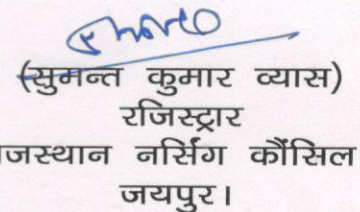 (सुमन्त कुमार व्यास)
रजिस्ट्रार
जस्थान नर्सिंग कौंसिल
जयपुर।